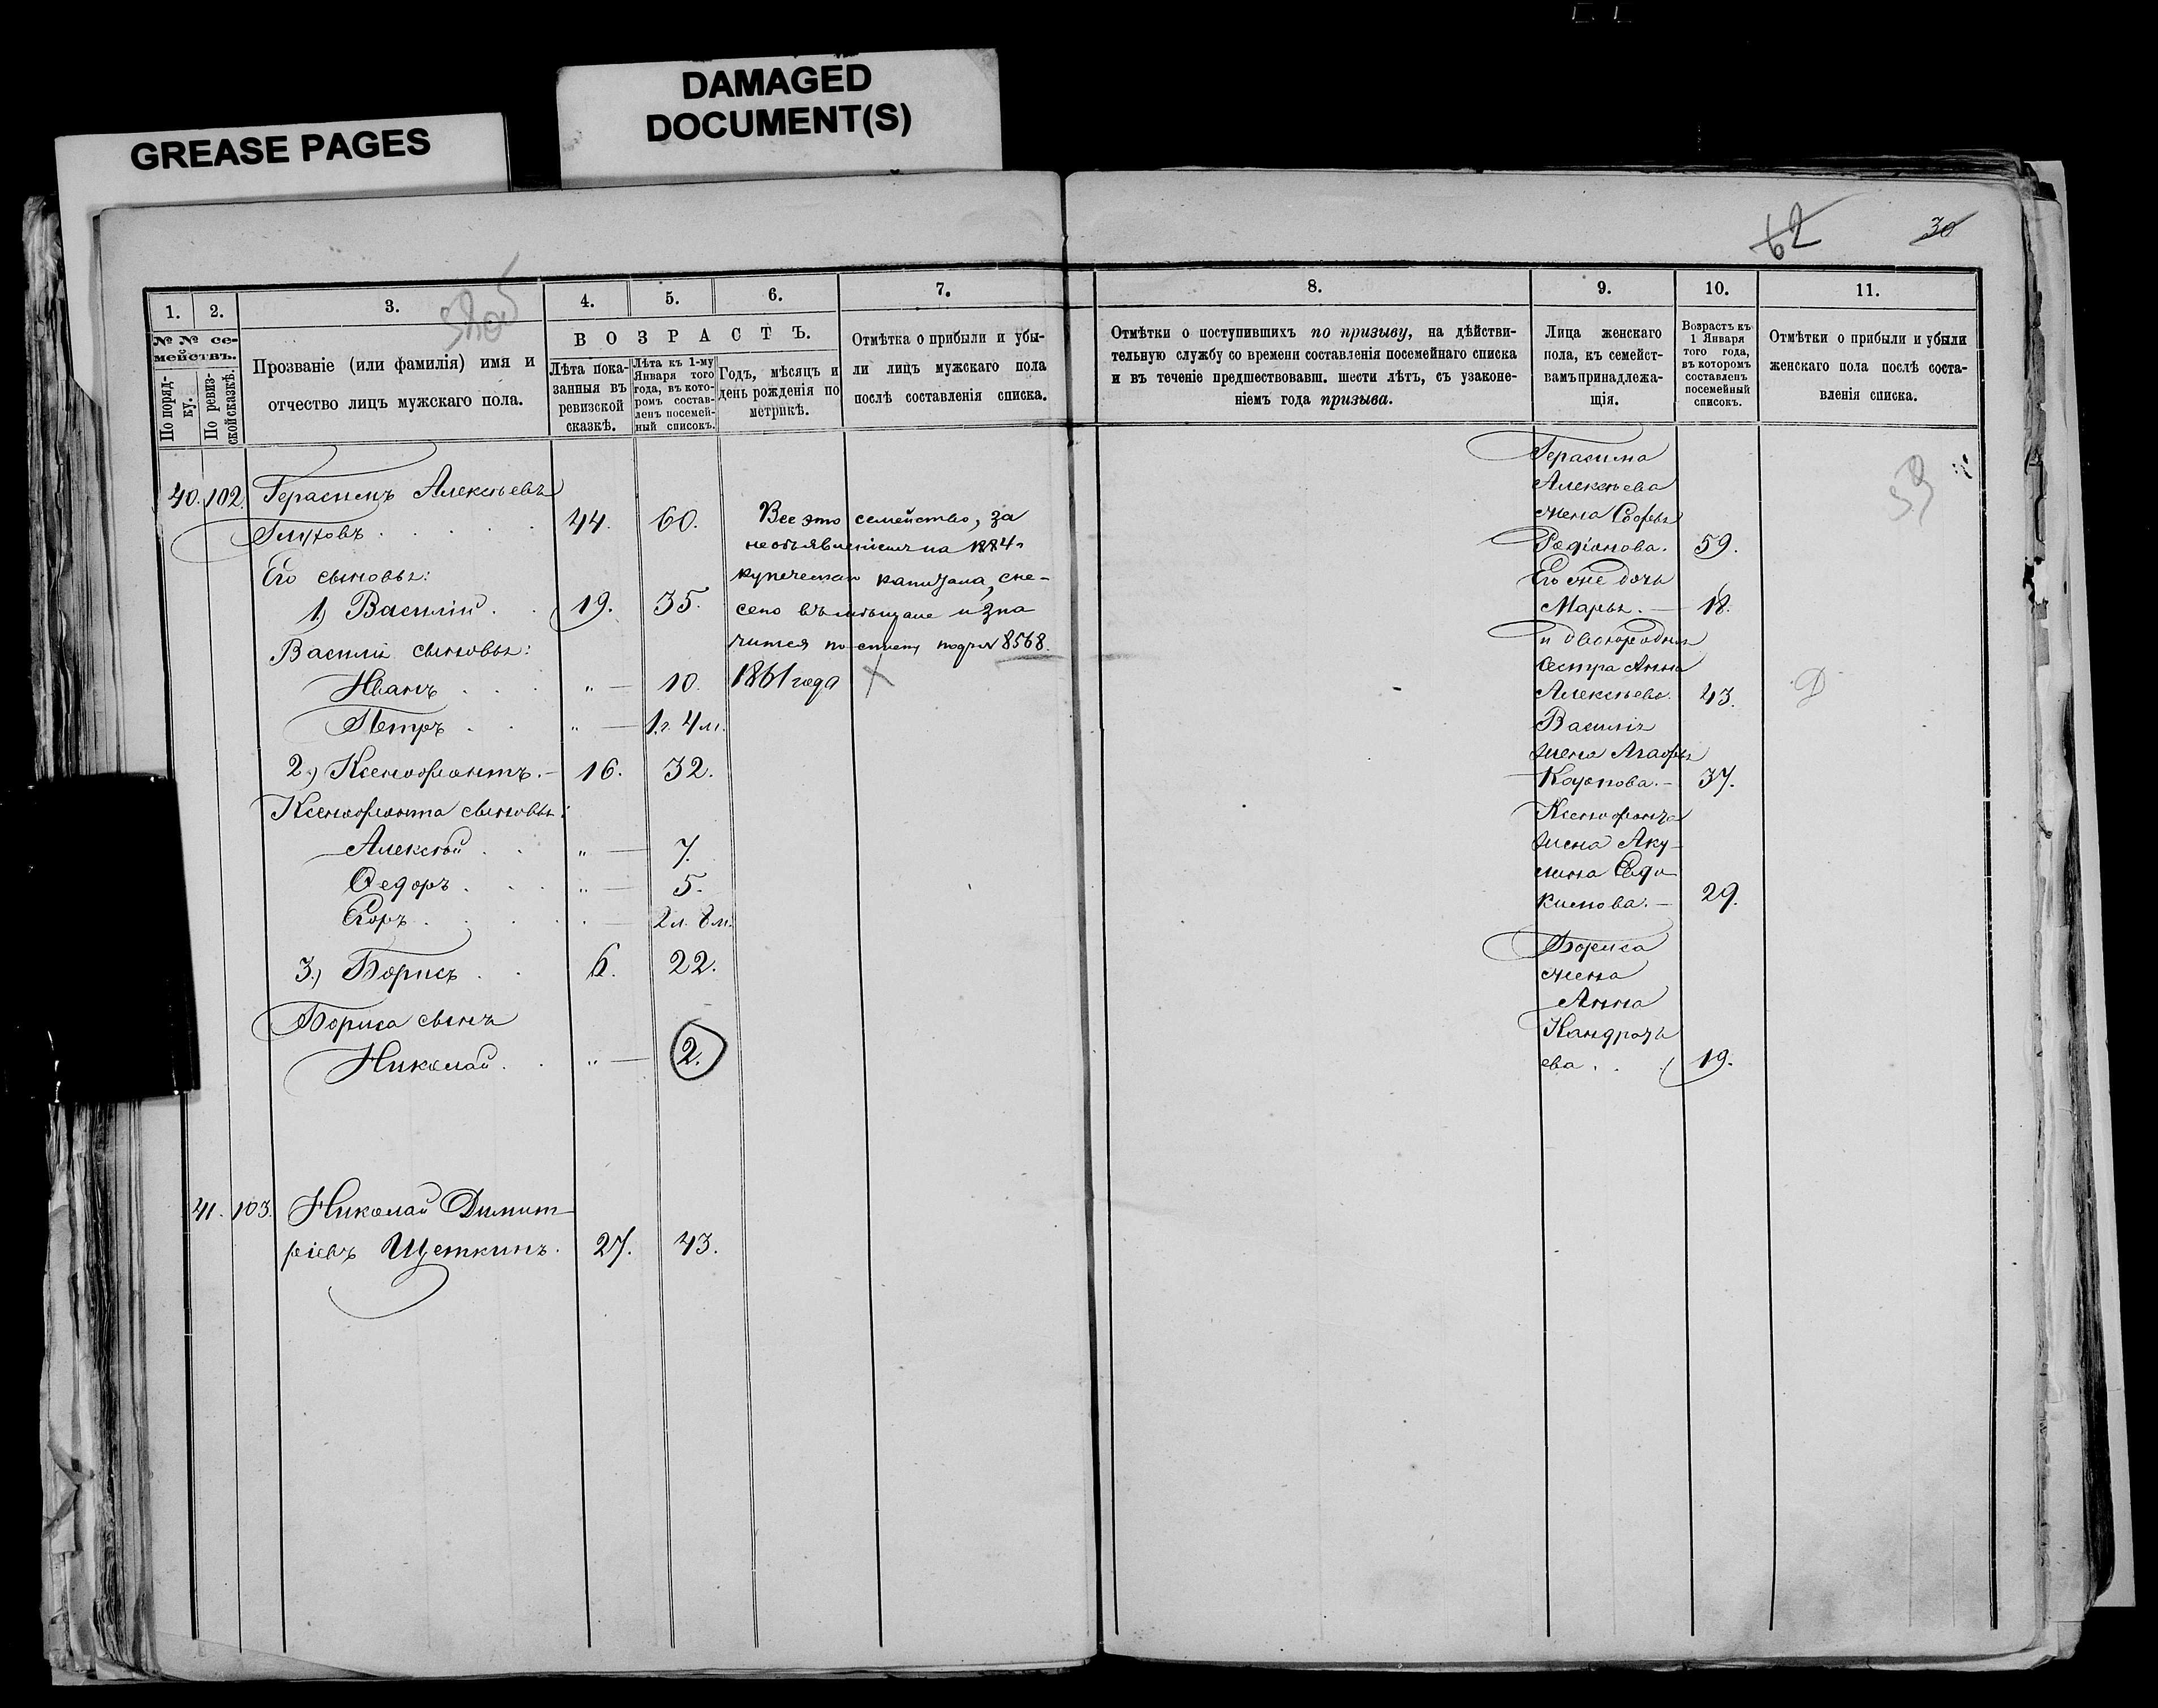 DAMAGED
DOCUMENT(S)
GREASE PAGES
62
30
1.
2.
3.
4.
5.
6.
7.
8.
9.
10.
11.
№ № се-
мействъ.
По поряд-
ку.
По ревиз-
ской сказкѣ.
Прозваніе (или фамилія) имя и
отчество лицъ мужскаго пола.
ВОЗРАСТЪ.
Лѣта пока-
занныя въ
ревизской
сказкѣ.
Лѣта къ 1-му
Января того
года, въ кото-
ромъ состав-
ленъ посемей-
ный списокъ.
Годъ, мѣсяцъ и
день рожденія по
метрикѣ.
Отмѣтка о прибыли и убы-
ли лицъ мужскаго пола
послѣ составленія списка.
Отмѣтки о поступившихъ по призыву, на дѣйстви-
тельную службу со времени составленія посемейнаго списка
и въ теченіе предшествовавш. шести лѣтъ, съ узаконе-
ніемъ года призыва.
Лица женскаго
пола, къ семейст-
вамъ принадлежа-
щія.
Возрастъ къ
1 Января
того года,
въ которомъ
составленъ
посемейный
списокъ.
Отмѣтки о прибыли и убыли
женскаго пола послѣ соста-
вленія списка.
40. 102. Герасимъ Алексѣевъ
Глуховъ . . . . 44. 60.
Его сыновья:
1.) Василій . . 19. 35.
Василія сыновья:
Иванъ . . . " — 10. 1861 года
Петръ . . " — 1г. 4м.
2.) Ксенофонтъ. — 16. 32.
Ксенофонта сыновья:
Алексѣй . . " — 7.
Федоръ . . . " — 5.
Егоръ . . . . — 2л. 8м.
3.) Борисъ . . 6. 22.
Бориса сынъ
Николай . . " — 2.
41. 103. Николай Димит-
ріевъ Щеткинъ. 27. 43.
Все это семейство, за
необъявленіемъ на 1884 г.
купеческаго капитала, сне-
сено въ мѣщане и зна
чится по списку подъ № 8568.
Герасима
Алексѣева
жена Софья
Радіонова. 59.
Его же дочь
Марья. — 18.
и двоюродная
сестра Анна
Алексѣева. 43.
Василія
жена Агафья
Карпова. — 37.
Ксенофонта
жена Аку-
лина Евдо
кимова. — 29.
Бориса
жена
Анна
Кандрать
ева . . . 19.
59